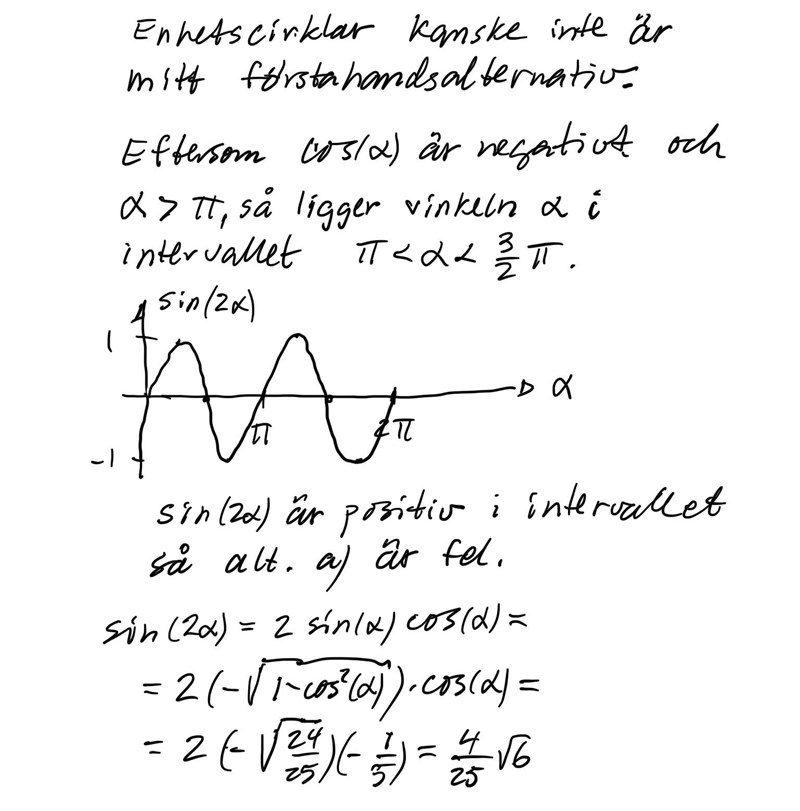 Enhetscirklar kanske inte är
mitt förstahandsalternativ.
Eftersom cos(α) är negativt och
α > π, så ligger vinkeln α i
intervallet π < α < 3/2 π.
sin(2α)
1
α
π
2π
-1
sin(2α) är positiv i intervallet
så alt. a) är fel.
sin(2α) = 2 sin(α) cos(α) =
= 2 (-√(1-cos²(α))) · cos(α) =
= 2 (-√(24/25)) (-1/5) = 4/25 √6